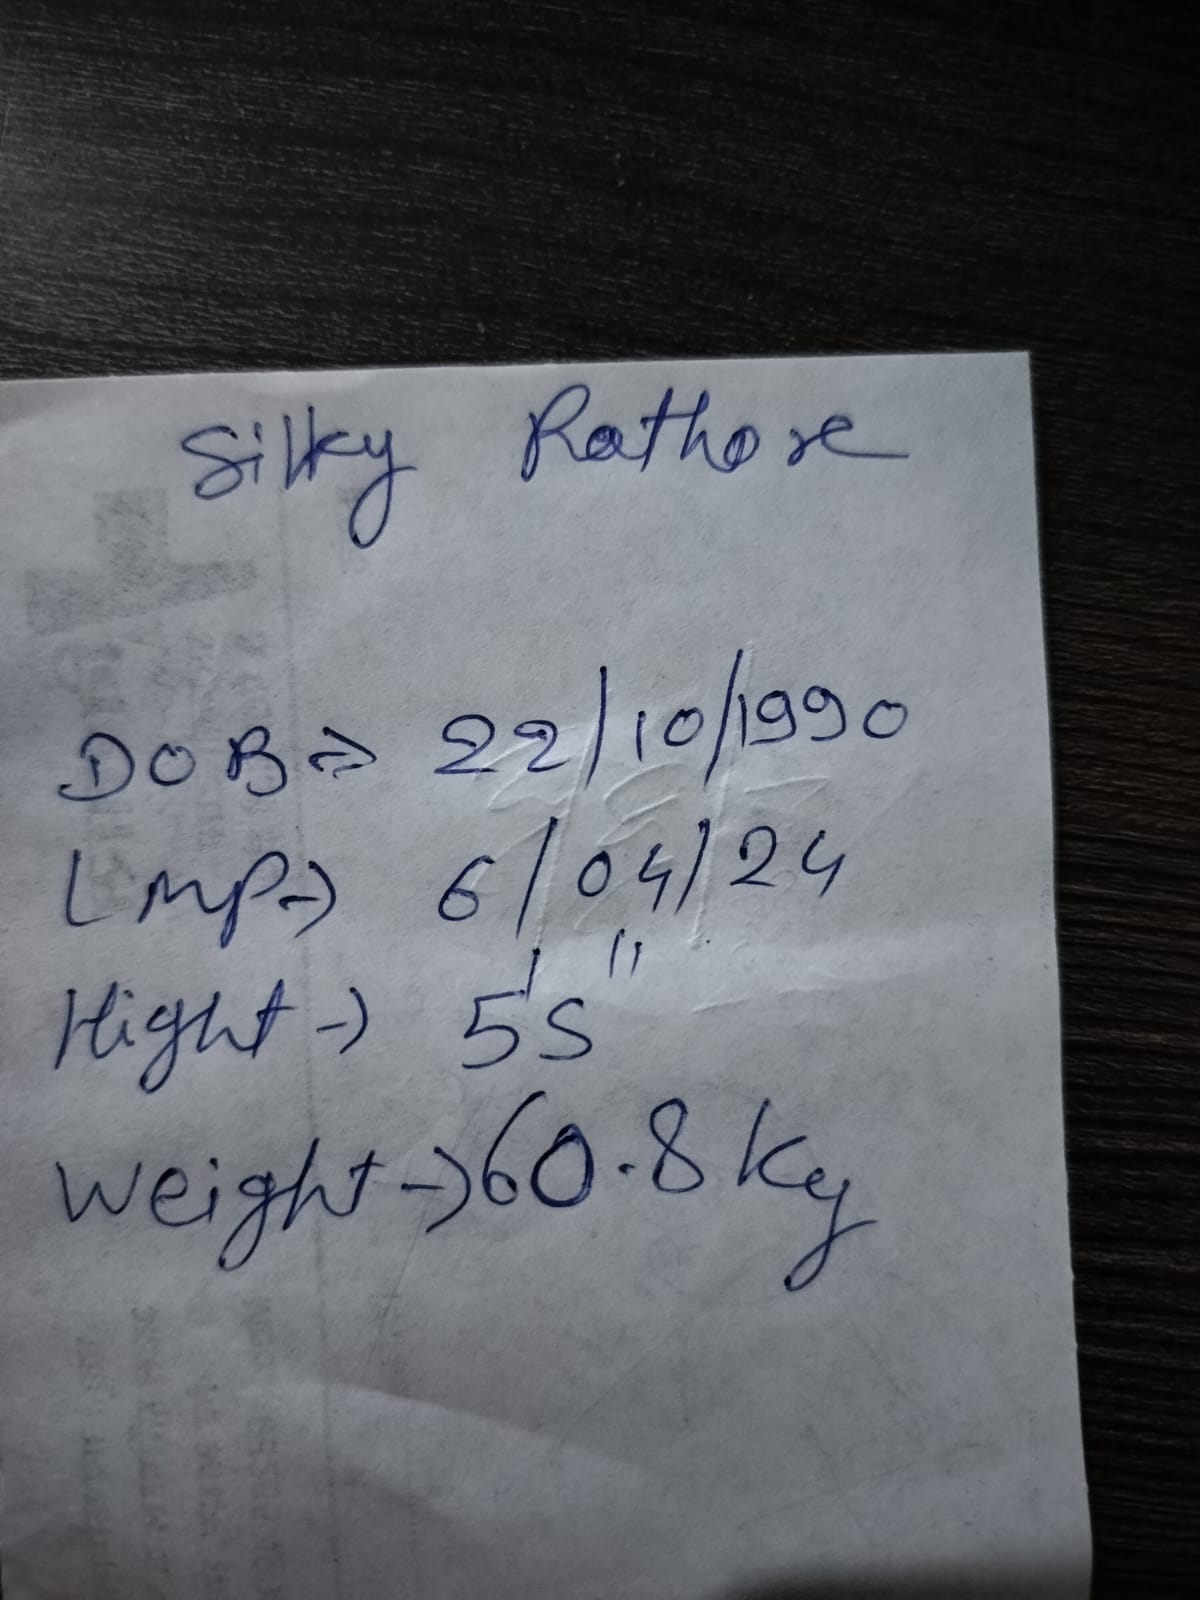 Silky Rathore
DOB => 22/10/1990
LMP -> 6/04/24
Hight -> 5'5"
Weight -> 60.8 Kg